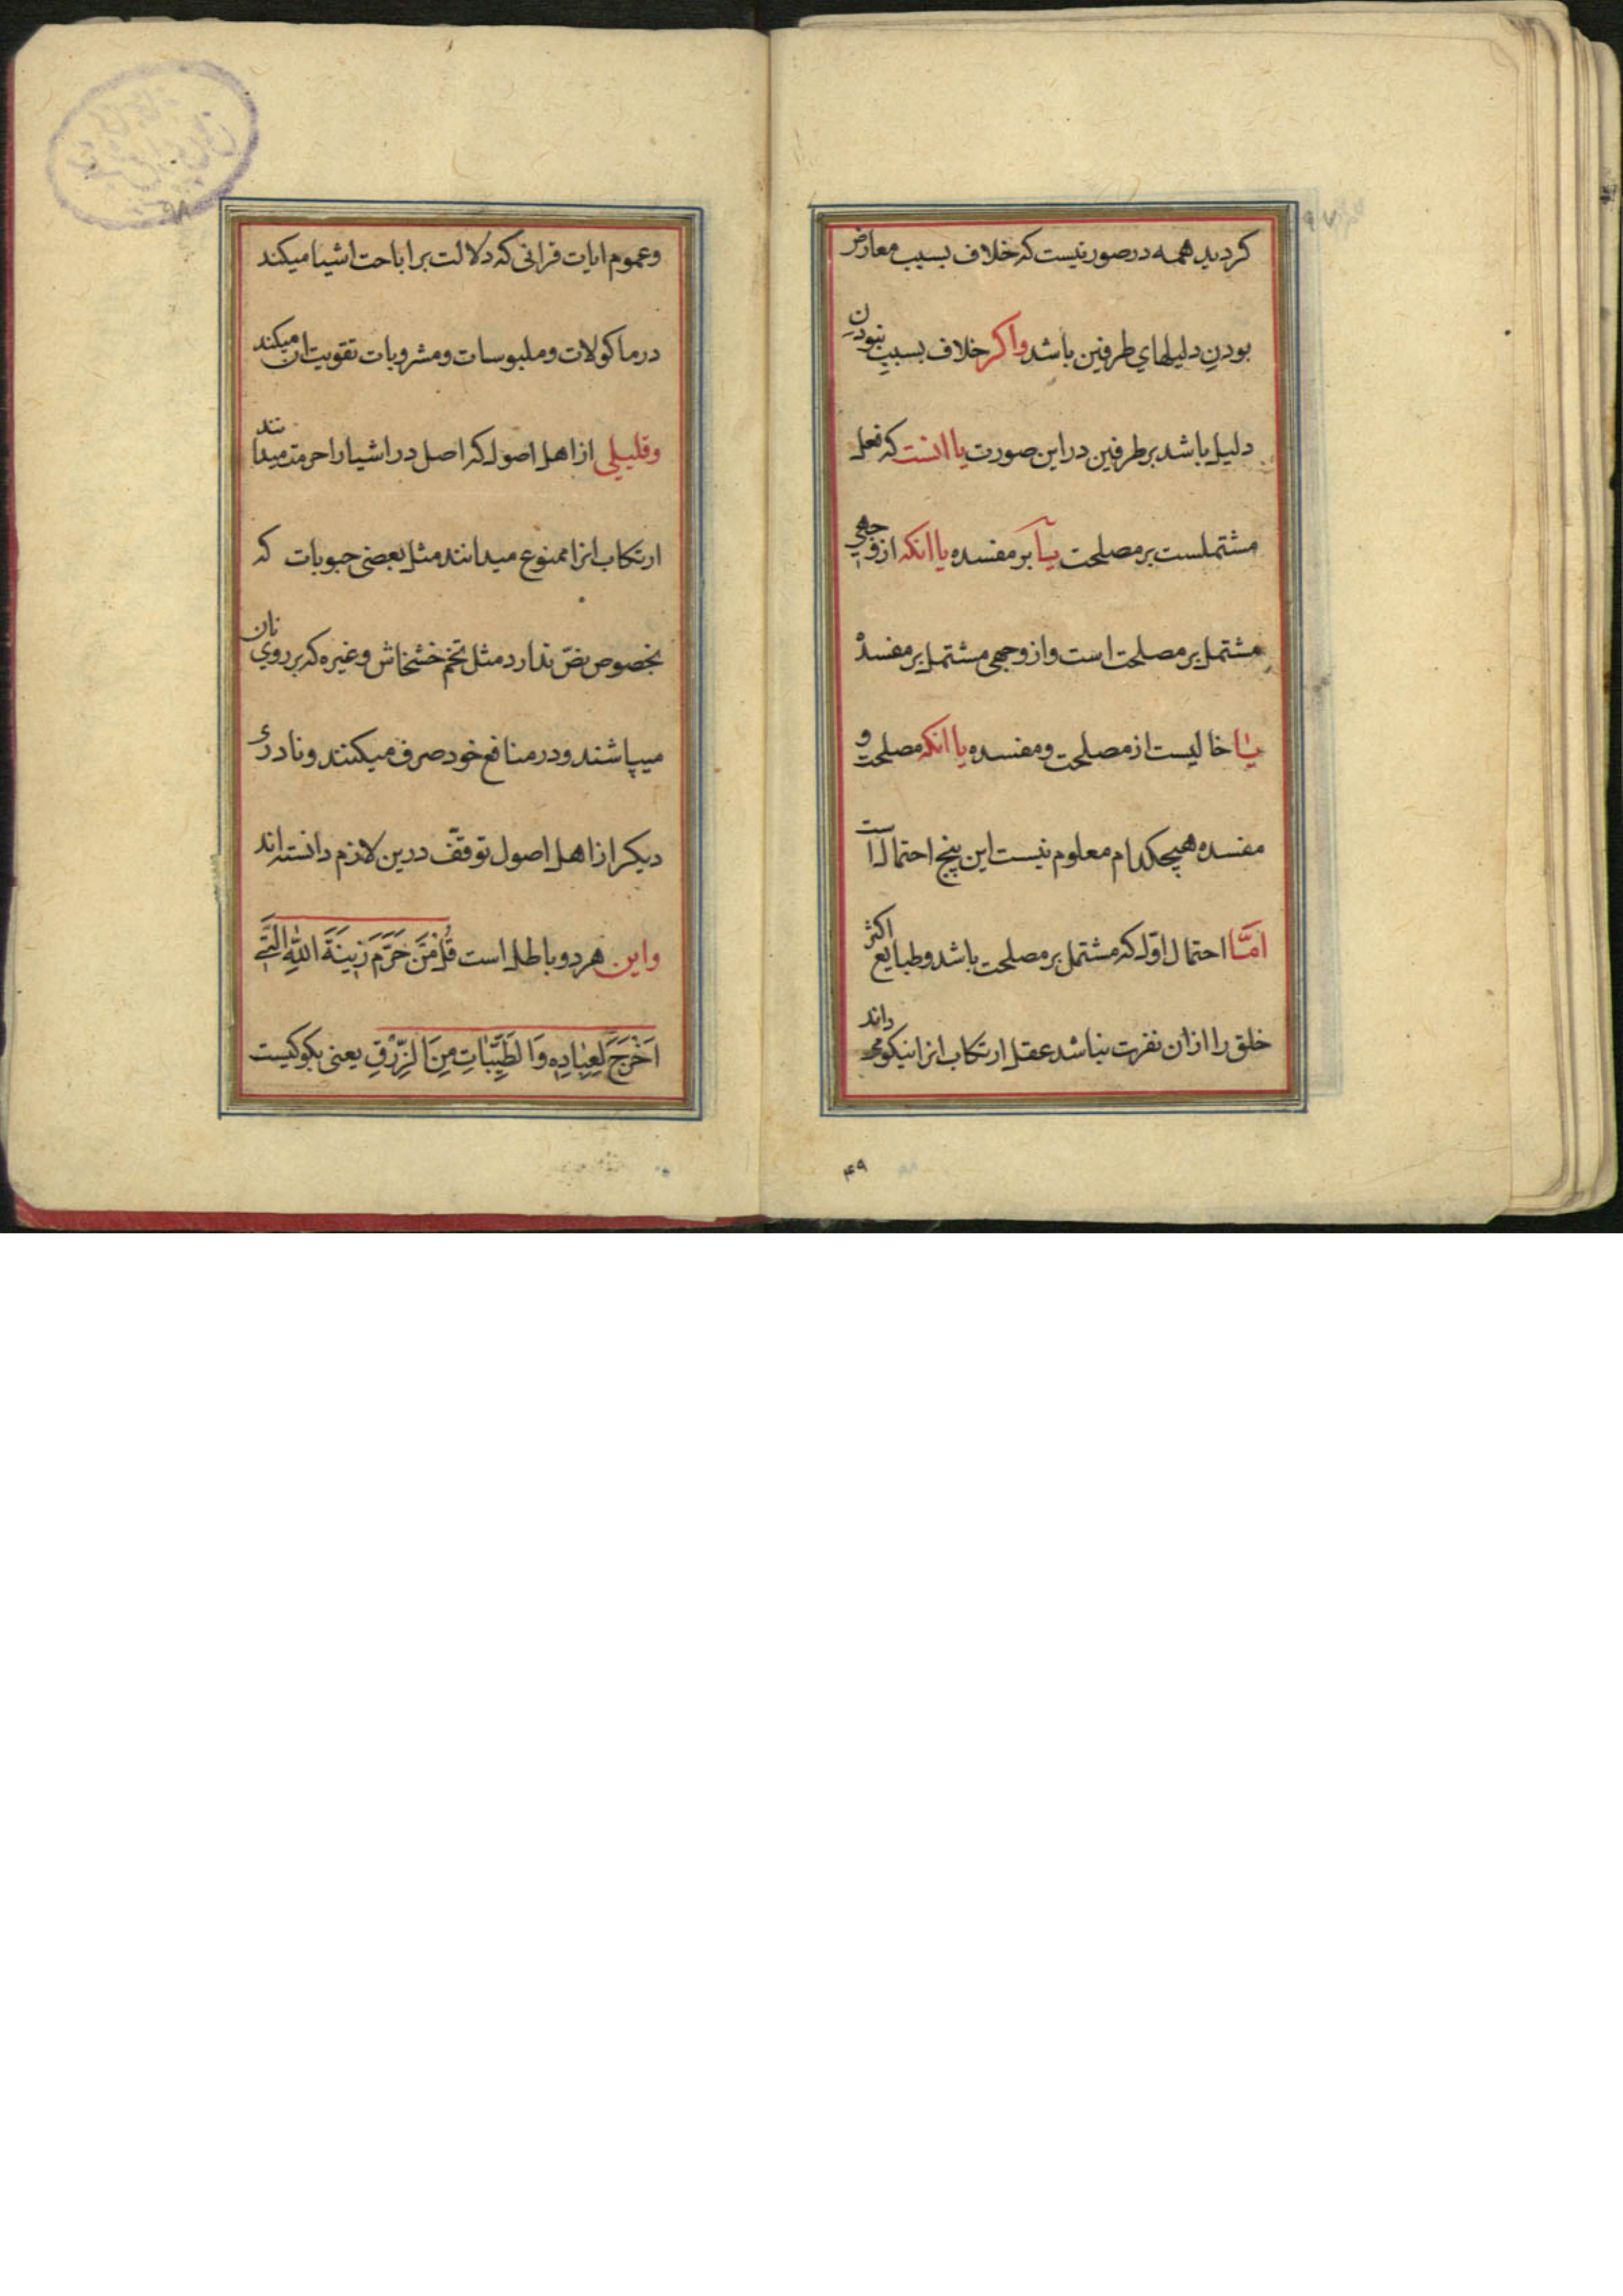 کردید همه در صورتیست که خلاف بسبب معارض
بودن دلیلهای طرفین باشد واکر خلاف بسبب نبودن
دلیل باشد بر طرفین در این صورت یا انست که فعل
مشتملست بر مصلحت یا بر مفسده یا انکه از وجهی
مشتمل بر مصلحت است و از وجهی مشتمل بر مفسده
یا خالیست از مصلحت و مفسده یا انکه مصلحت و
مفسده هیچکدام معلوم نیست این پنج احتمال است
امّا احتمال اوّل که مشتمل بر مصلحت باشد و طبایع اکثر
خلق را ازان نفرت نباشد عقل ارتکاب انرا نیکو می داند
۴۹
۹۸
وعموم ایات قرانی که دلالت بر اباحت اشیا میکند
در ماکولات و ملبوسات و مشروبات تقویت ان میکند
وقلیلی از اهل اصول که اصل در اشیا را حرمت میدانند
ارتکاب انرا ممنوع میدانند مثل بعضی حبوبات که
بخصوص نصّ ندارد مثل تخم خشخاش و غیره که بر روی نان
میپاشند و در منافع خود صرف میکنند و نادری
دیکر از اهل اصول توقّف درین لازم دانسته اند
واین هر دو باطل است قُلْ مَنْ حَرَّمَ زِینَةَ اللّٰهِ الَّتِي
اَخْرَجَ لِعِبَادِهِ وَالطَّیِّبَاتِ مِنَ الرِّزْقِ یعنی بکو کیست